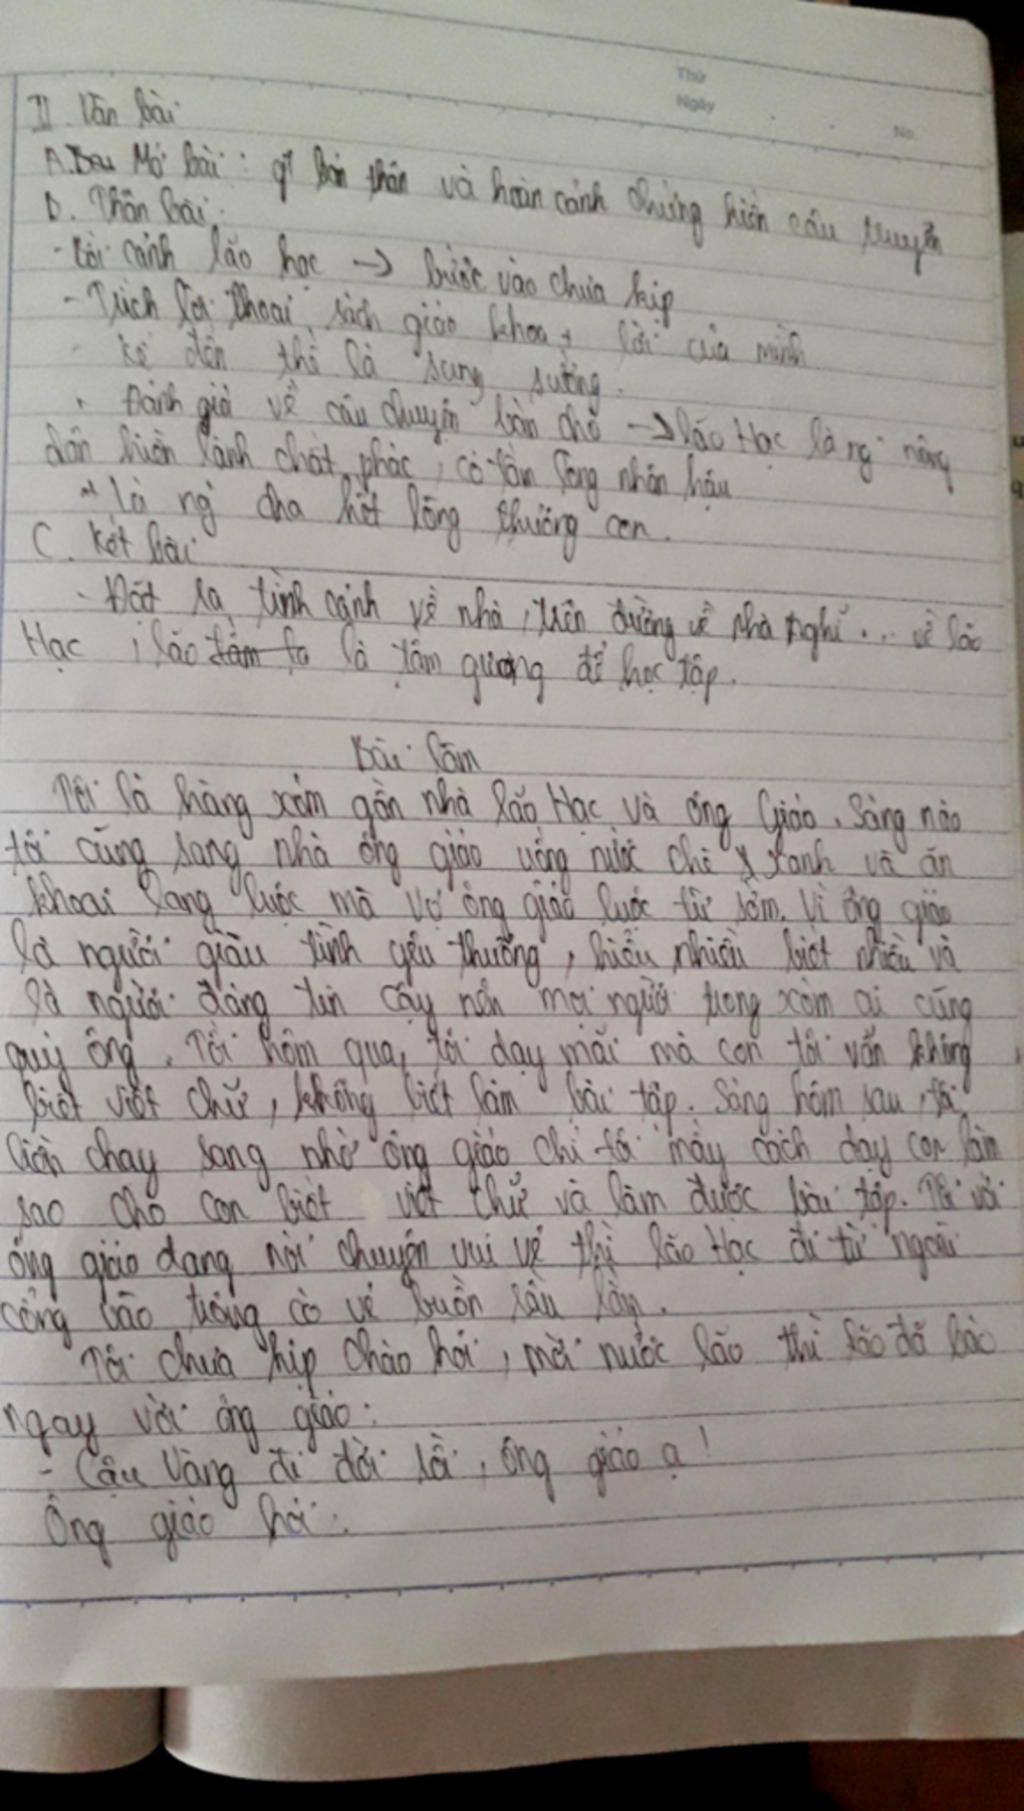 Thứ
Ngày
No.
II. Văn bài
A. Mở bài: gt bản thân và hoàn cảnh chứng kiến câu chuyện
b. Thân bài:
- Lời cảnh lão học -> bước vào chưa kịp
- Trích lời thoại sách giáo khoa + lời của mình
- kể đến thế là sung sướng.
. Đánh giá về câu chuyện bán chó -> lão Hạc là ng nông
dân hiền lành chất phác, có tấm lòng nhân hậu
Là ng cha hết lòng thương con.
C. Kết bài
- Đặt ra tình cảnh về nhà, trên đường về nhà nghĩ ... về lão
Hạc ; lão là tấm gương để học tập.
Bài làm
Tôi là hàng xóm gần nhà lão Hạc và ông Giáo. Sáng nào
tôi cũng sang nhà ông giáo uống nước chè xanh và ăn
khoai lang luộc mà vợ ông giáo luộc từ sớm. Vì ông giáo
là người giàu tình yêu thương, hiểu nhiều biết nhiều và
là người đáng tin cậy nên mọi người trong xóm ai cũng
quý ông. Tối hôm qua, tôi dạy mãi mà con tôi vẫn không
biết viết chữ, không biết làm bài tập. Sáng hôm sau, tôi
liền chạy sang nhờ ông giáo chỉ tôi mấy cách dạy con làm
sao cho con biết viết chữ và làm được bài tập. Tôi với
ông giáo đang nói chuyện vui vẻ thì lão Hạc đi từ ngoài
cổng vào trông có vẻ buồn rầu lắm.
Tôi chưa kịp chào hỏi, mời nước lão thì lão đã báo
ngay với ông giáo:
- Cậu Vàng đi đời rồi, ông giáo ạ!
Ông giáo hỏi: